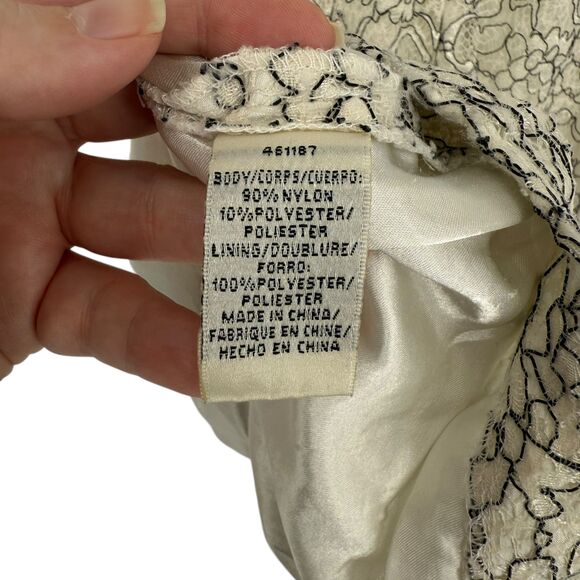 461187
BODY/CORPS/CUERPO:
90% NYLON
10% POLYESTER/
POLIESTER
LINING/DOUBLURE/
FORRO:
100% POLYESTER/
POLIESTER
MADE IN CHINA/
FABRIQUE EN CHINE/
HECHO EN CHINA